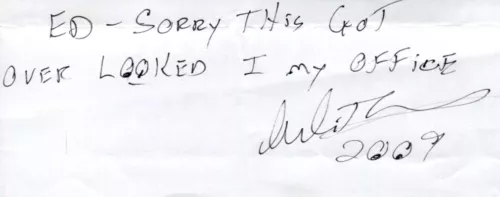 ED - SORRY THIS GOT
OVER LOOKED I my OFFICE
2009